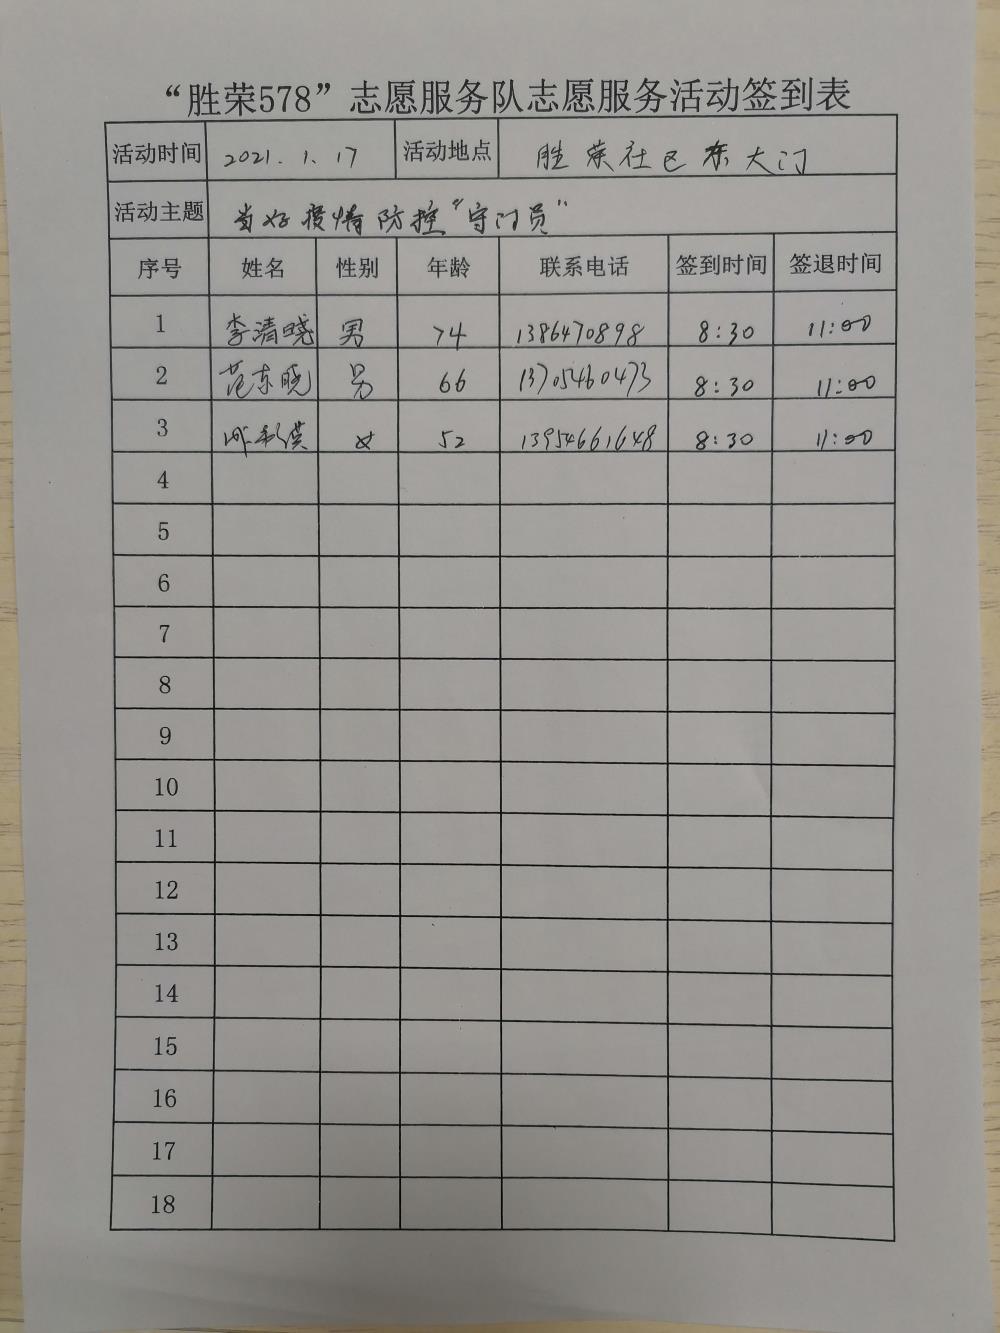 “胜荣578”志愿服务队志愿服务活动签到表
活动时间 2021.1.17 活动地点 胜荣社区东大门
活动主题 当好疫情防控“守门员”
序号 姓名 性别 年龄 联系电话 签到时间 签退时间
1 李清晓 男 74 1386470898 8:30 11:00
2 范东晓 男 66 13705460473 8:30 11:00
3 女 52 13954661648 8:30 11:00
4
5
6
7
8
9
10
11
12
13
14
15
16
17
18